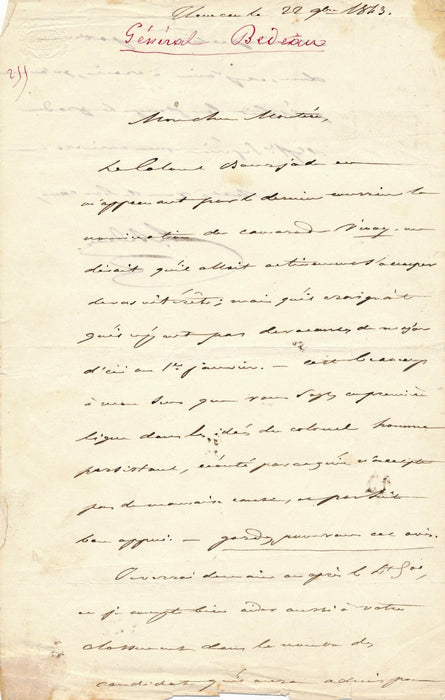 22 9bre 1843.
Général Bedeau
255.
Mon cher
Le Colonel Bourjade en
m'apprenant par le dernier courrier la
nomination de camarade me
disait qu'il allait activement s'occuper
de vos intérêts; mais qu'il craignait
qu'il n'y eut pas de vacances de major
d'ici au 1er janvier. — c'est beaucoup
à mon sens que vous soyez en première
ligne dans les idées du colonel homme
persistant, écouté parce qu'il n'accepte
pas de mauvaise cause, et par suite
bon appui. — gardez pour vous cet avis.
Je verrai demain ou après le
et je compte bien aider aussi à votre
classement dans le nombre des
candidats qu'il aura à